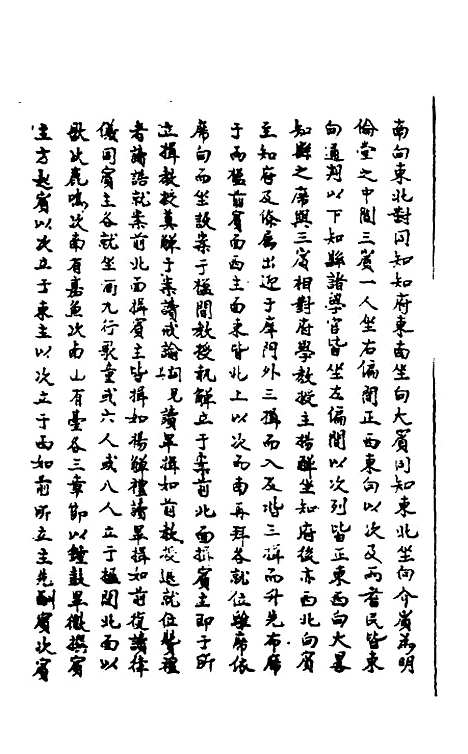 南向東北對同知知府東南坐向大賓同知東北坐向介賓為明
倫堂之中間三賓一人坐右偏間正西東向以次及兩耆民皆東
向通判以下知縣諸學官皆坐左偏間以次列皆正東西向大畧
知縣之席與三賓相對府學教授主揚觶坐知府後亦西北向賓
至知府及僚屬出迎于庠門外三揖而入及堦三揖而升先布席
于兩楹前賓面西主面東皆北上以次而南再拜各就位離席依
席向而坐設案于楹間教授執觶立于案前北面揖賓主即于所
立揖教授奠觶于案讀戒諭詞見讀畢揖如前教授退就位贊禮
者請誥就案前北面揖賓主皆揖如揚觶禮讀畢揖如前復讀律
儀同賓主各就坐酒九行歌童或六人或八人立于楹間北面以
歌次鹿鳴次南有嘉魚次南山有臺各三章節以鐘鼓畢徹撰賓
主方起賓以次立于東主以次立于西如前所立主先酬賓次賓